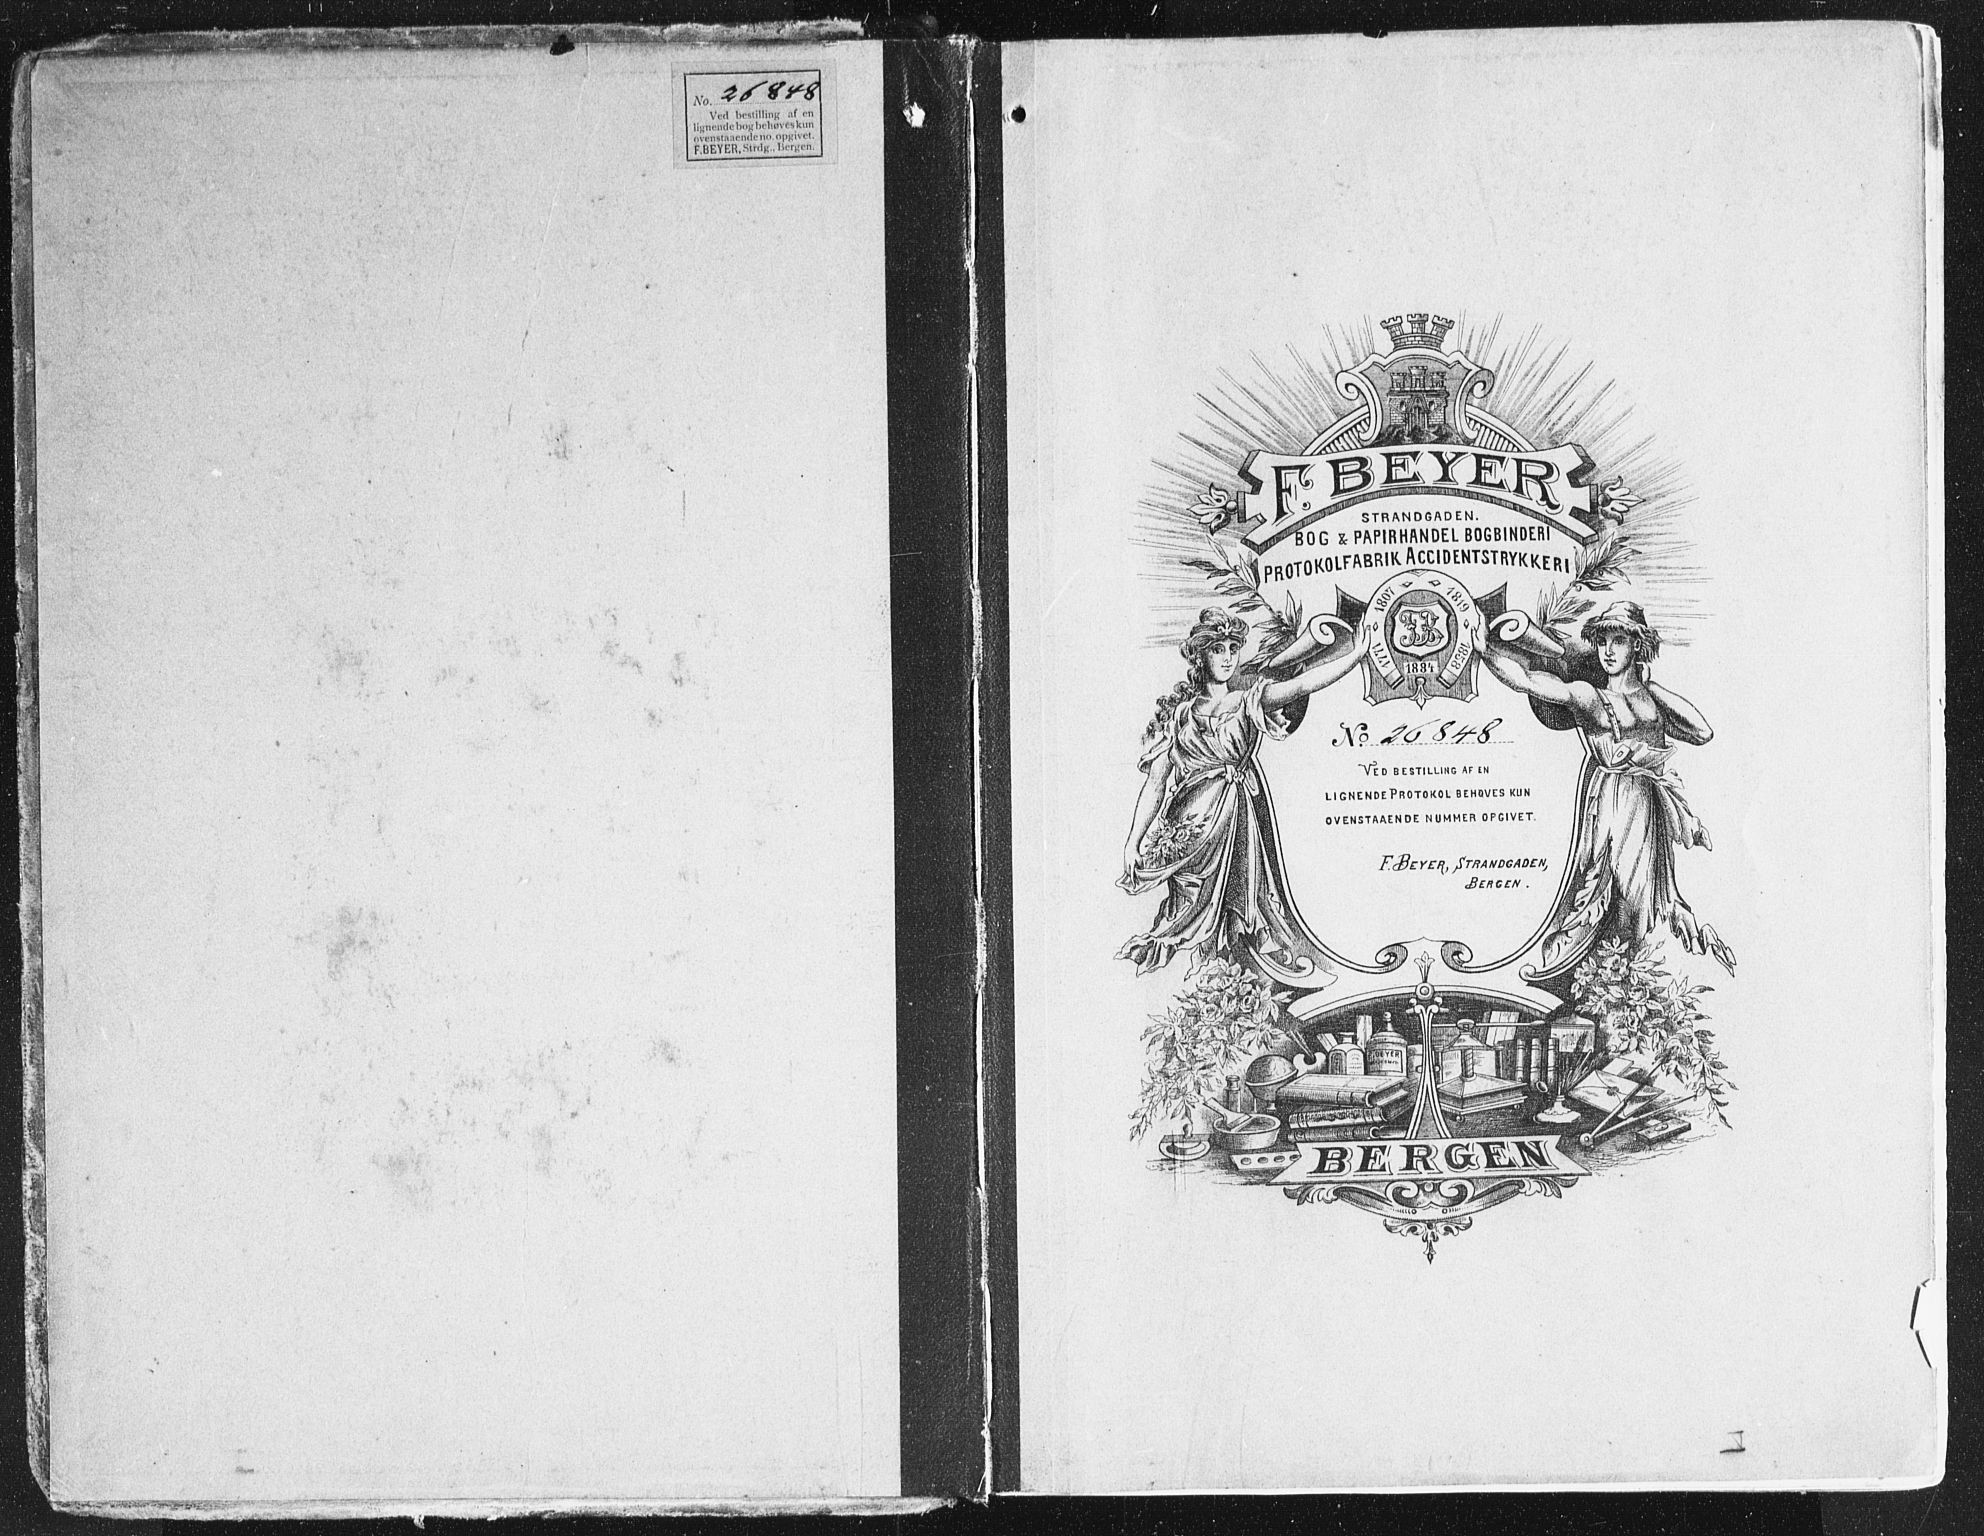 No. 26848
Ved bestilling af en
lignende bog behøves kun
ovenstaaende no. opgivet.
F. BEYER, Strdg., Bergen.
F. BEYER
STRANDGADEN.
BOG & PAPIRHANDEL BOGBINDERI
PROTOKOLFABRIK ACCIDENTSTRYKKERI
1771 1807 1819 1858
1884
No. 26848
VED BESTILLING AF EN
LIGNENDE PROTOKOL BEHØVES KUN
OVENSTAAENDE NUMMER OPGIVET.
F. BEYER, STRANDGADEN,
BERGEN.
BEYER
BERGEN